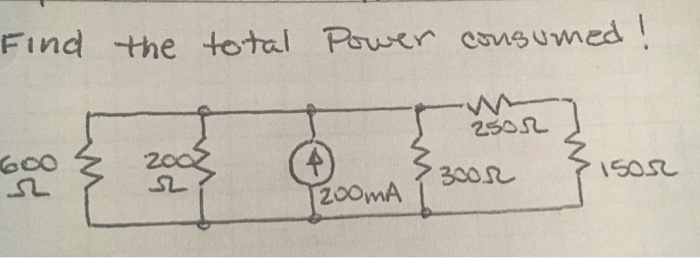 Find the total Power consumed!
250Ω
600 Ω
200 Ω
300Ω
150Ω
200mA